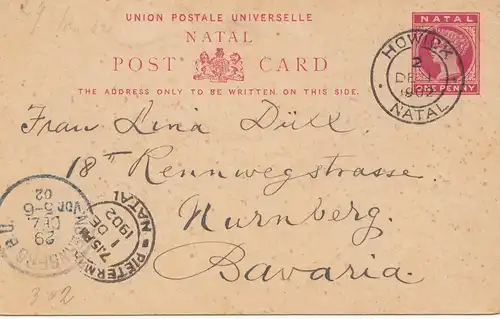 UNION POSTALE UNIVERSELLE
NATAL
POST CARD
THE ADDRESS ONLY TO BE WRITTEN ON THIS SIDE.
NATAL
ONE PENNY
HOWICK
2
DE 1
1902
NATAL
Frau Lina Düll.
18II Rennwegstrasse
Nurnberg.
Bavaria.
NATAL
1 DE
1902
29
DEZ.
VOR 5-6
02